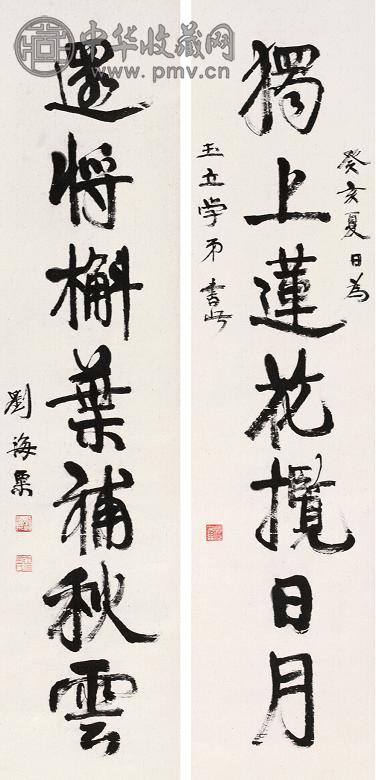 中华收藏网
www.pmv.cn
癸亥夏日為
獨上蓮花攬日月
玉立学弟書此
還將槲葉補秋雲
劉海粟